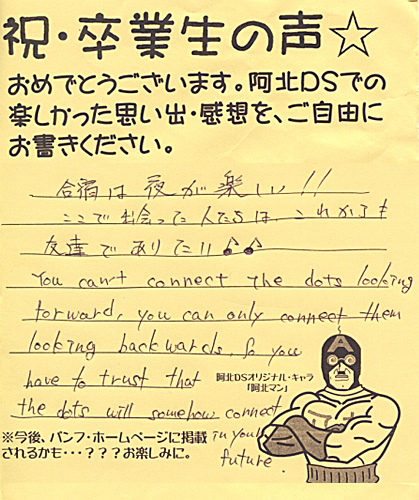 祝・卒業生の声☆
おめでとうございます。阿北DSでの
楽しかった思い出・感想を、ご自由に
お書きください。
合宿は夜が楽しい!!
ここで出会った人たちは、これからも
友達でありたい♪♪
You can't connect the dots looking
forward, you can only connect them
looking backwards. So you
have to trust that
the dots will somehow connect
in your
future.
阿北DSオリジナル・キャラ
「阿北マン」
※今後、パンフ・ホームページに掲載
されるかも・・・???お楽しみに。